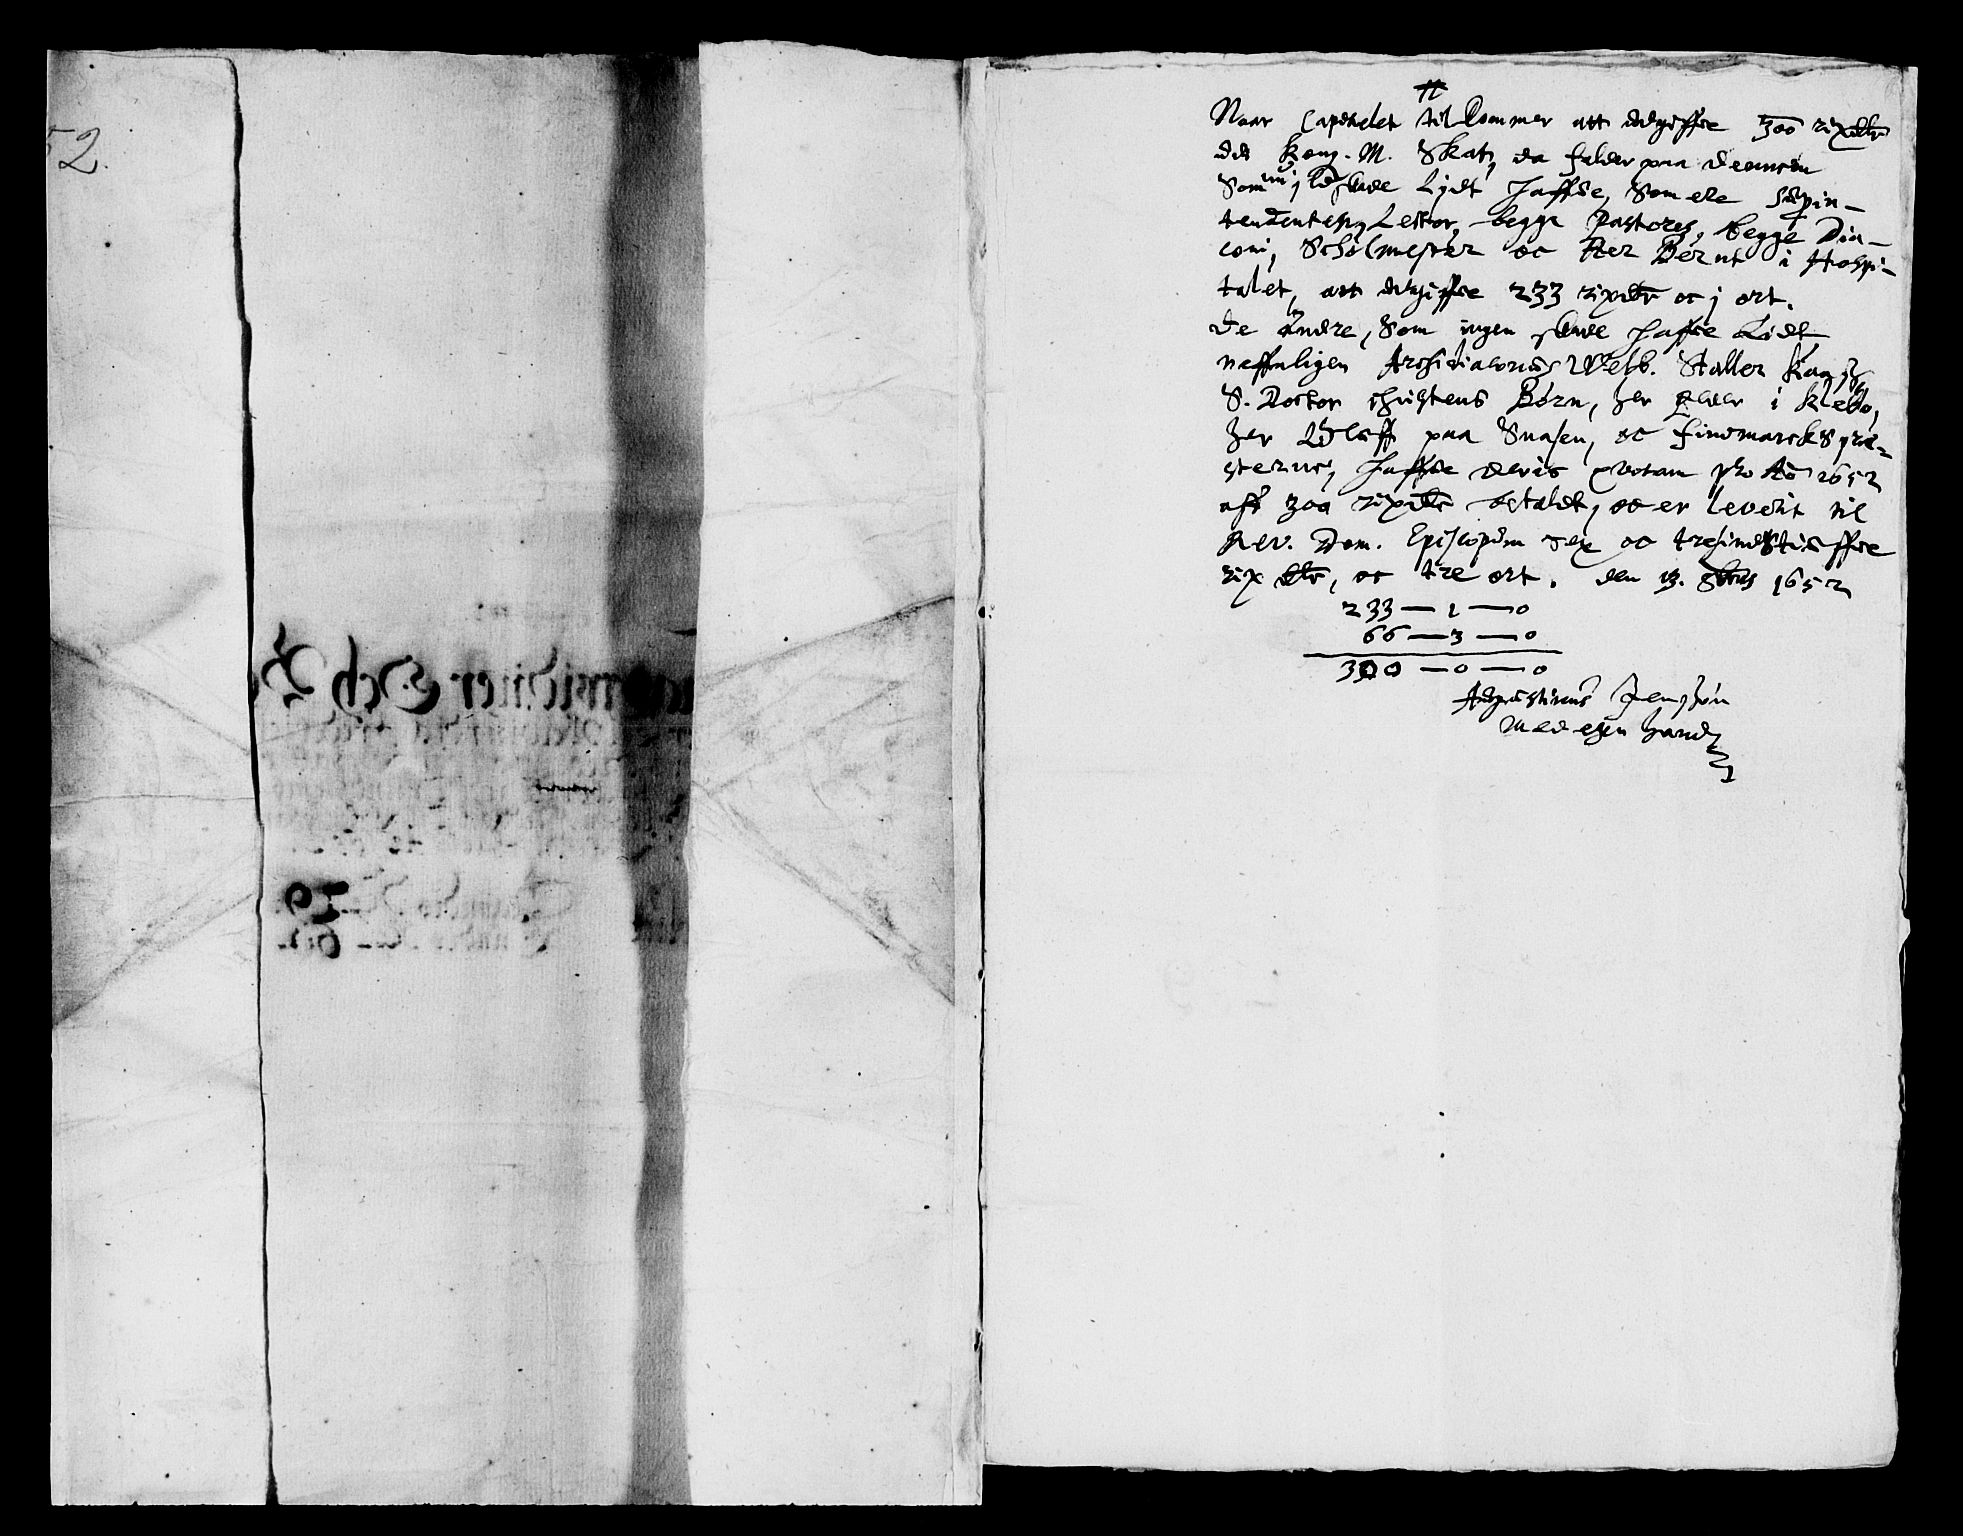 52.
Naar Capitulet tilkommer att udgiffue 300 rixdlr
udi Kong. M. Skat, da falder paa dennem
Som nu j ld skade Lijdt haffue, Som ere Supin-
tendenten, Lector, begge Pastores, begge Dia-
coni, Scholmester oc Her Bernt i Hospi-
talet, att udgiffue 233 rixdlr oc j ort.
De Andre, Som ingen skade haffue Lidt
neffnligen Archidiaconus Welb. Staller Kaas
S. Doctor Christens Børn, her Peder i Klebo,
her Oluff paa Snasen, oc Findmarcks præ-
sterne, haffue deris qvotam pro Ao 1652
aff 300 rixdlr betaldt, oc er leverit til
Rev. Dom. Episcopum sex oc tresindstiuffue
rix dlr, oc tre ort. den 13. 8bris 1652
233 — 1 — 0
66 — 3 — 0
300 — 0 — 0
Augustinus Jenssøn
Med egen hand